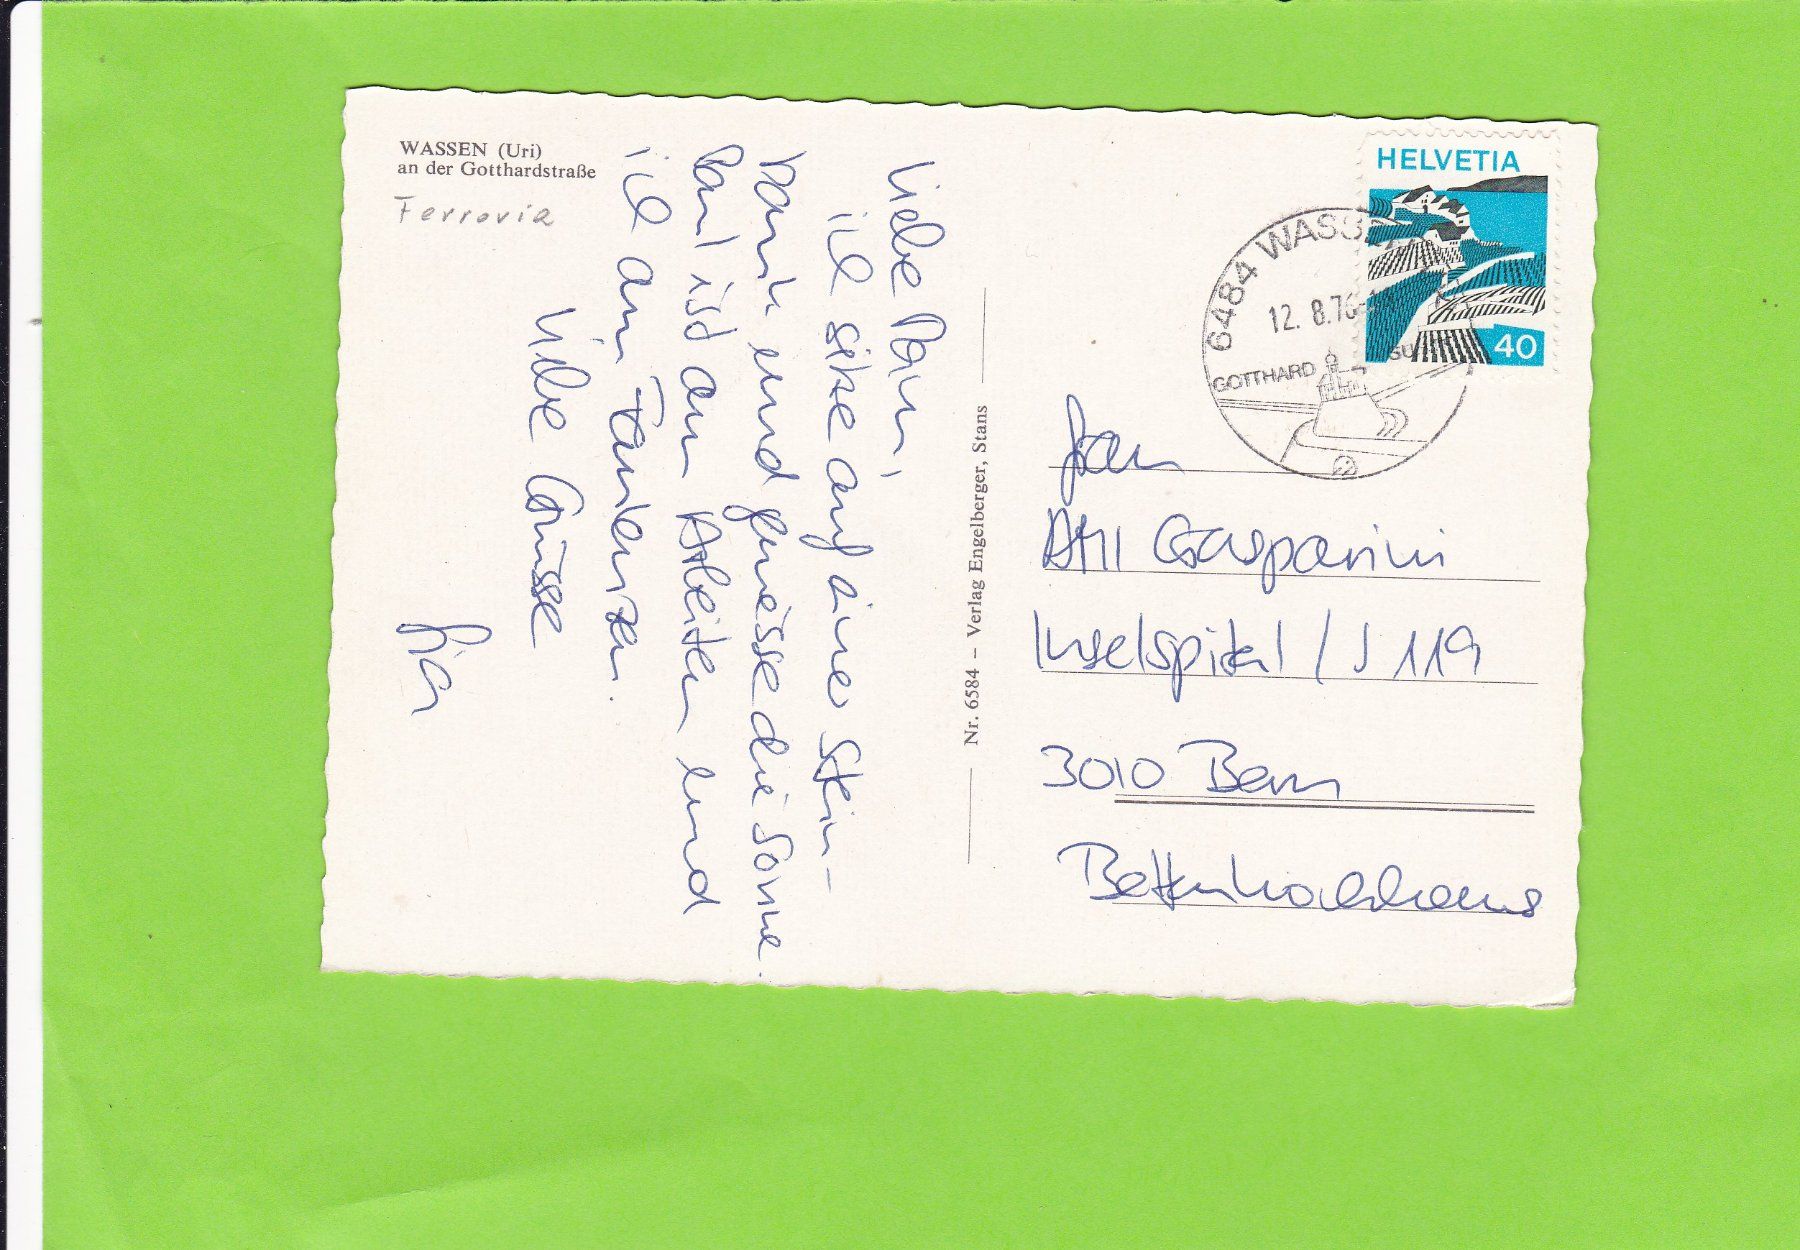 WASSEN (Uri)
an der Gotthardstraße
Ferrovia
Liebe Dani,
ich sitze auf einer Stein-
bank und geniesse die Sonne.
Paul ist am Arbeiten und
ich am Faulenzen.
Liebe Grüsse
Nr. 6584 – Verlag Engelberger, Stans
HELVETIA
40
6484 WASSEN
12. 8.76
GOTTHARD
Frau
Gasparini
Inselspital / J 119
3010 Bern
Bettenhochhaus